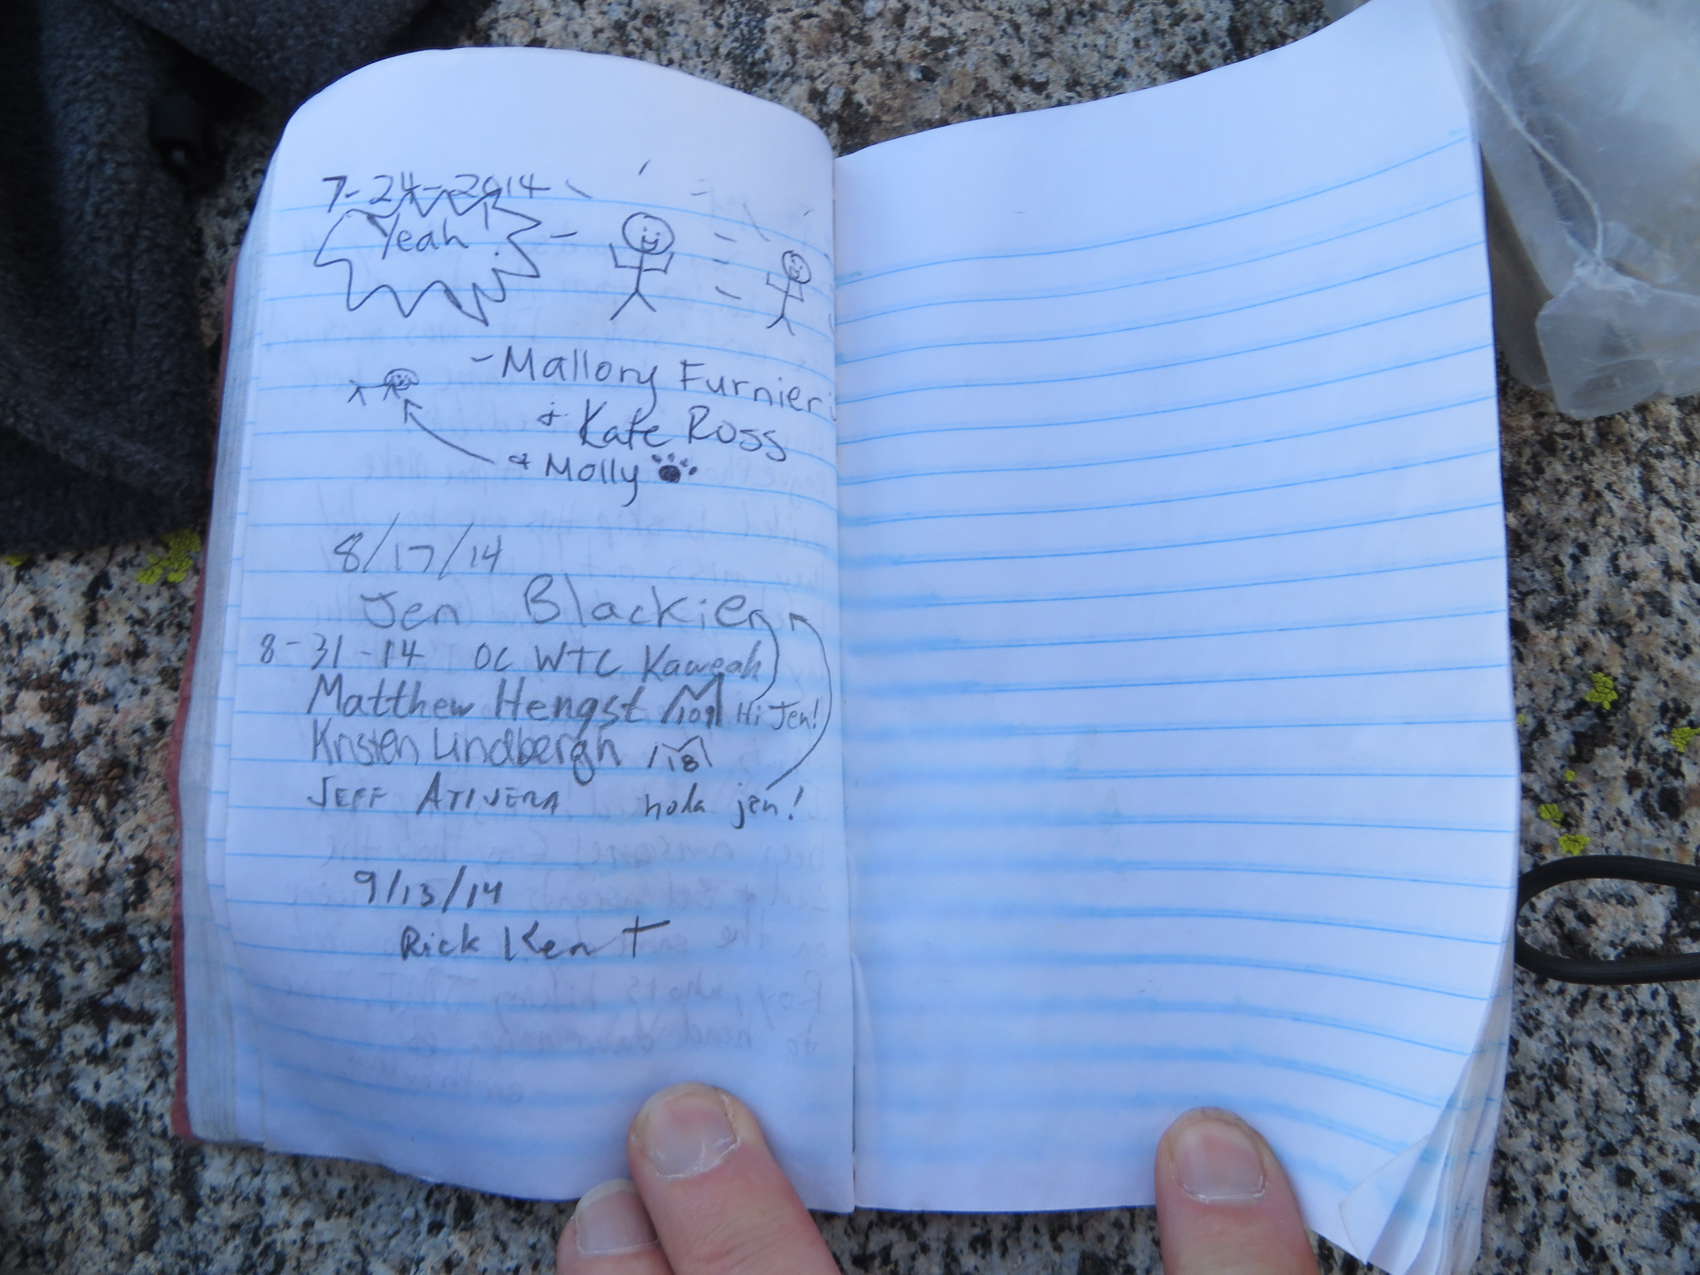 7-24-2014
Yeah!
- Mallory Furnier
+ Kate Ross
+ Molly
8/17/14
Jen Blackie
8-31-14 OC WTC Kaweah
Matthew Hengst 109 Hi Jen!
Kristen Lindbergh 18
JEFF ATIJERA hola jen!
9/13/14
Rick Kent